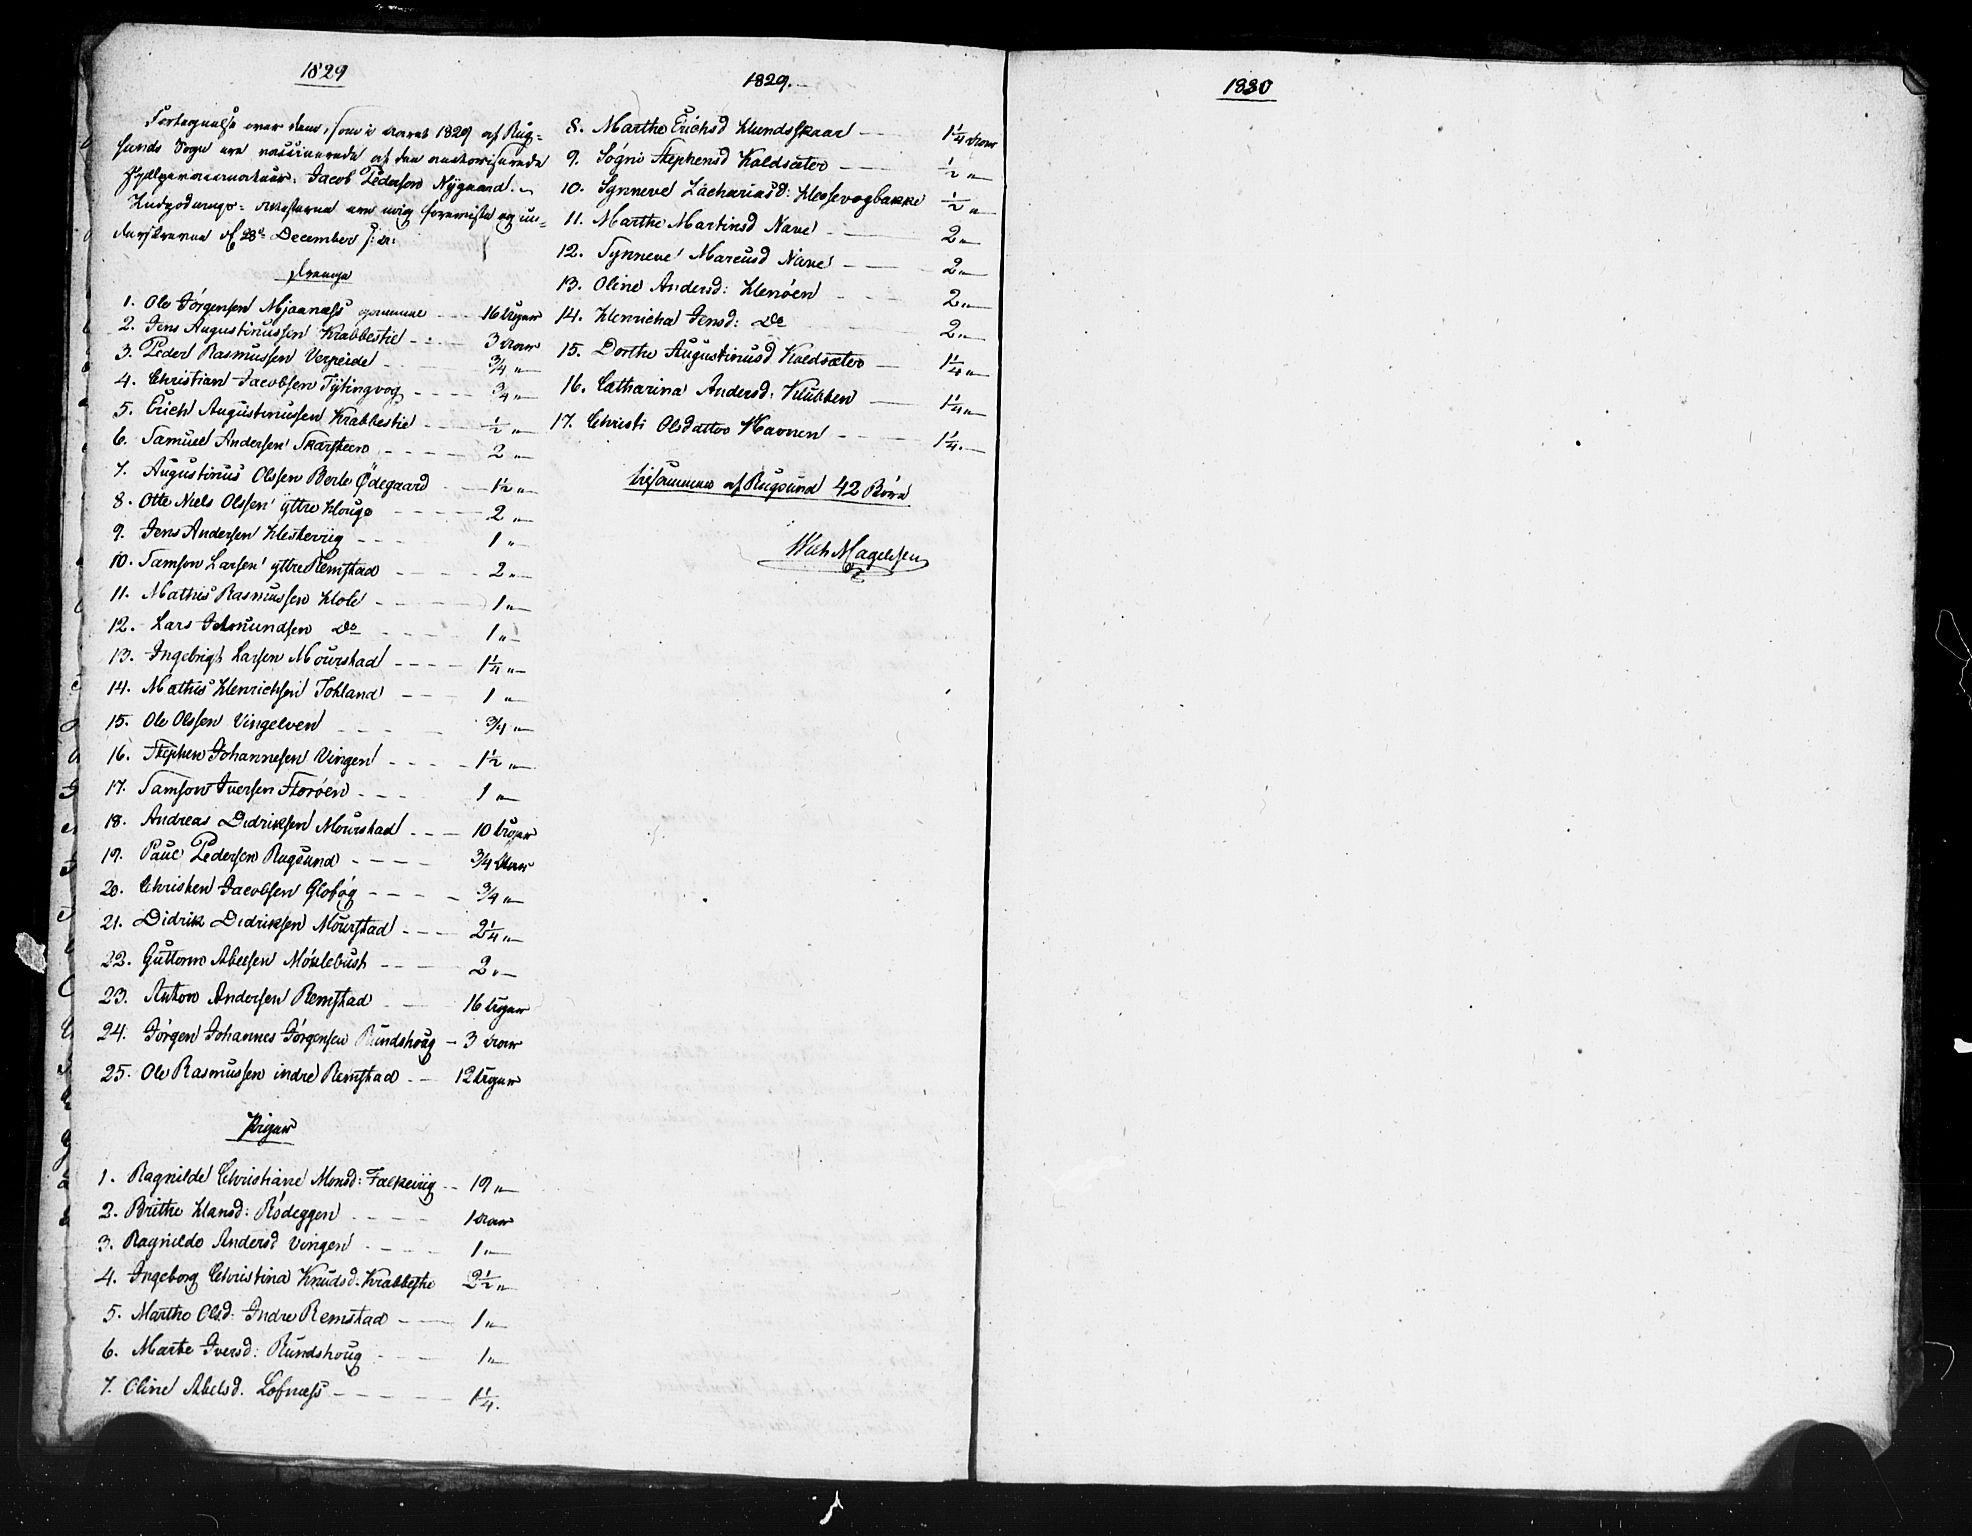 1829
Fortegnelse over dem, som i Aaret 1829 af Rug-
sunds Sogn ere vaccinerede af den authoriserede
Hjelpevaccinateur: Jacob Pedersen Nygaard.
Attesterne ere mig foreviste og un-
derskrevne d 28de December s: A:
Drenge
1. Ole Jörgensen Mjaanæss gammel 16 Uger
2. Jens Augustinussen Krabbestie 3 Aar
3. Peder Rasmussen Verpeide 3/4 "
4. Christian Jacobsen Tytingvog 3/4 "
5. Erich Augustinussen Krabbestie 1/2 "
6. Samuel Andersen Skarsteen 2 "
7. Augustinus Olssen Berle Ödegaard 1 1/2 "
8. Otte Niels Olssen yttre Houge 2 "
9. Jens Andersen Hestevig 1 "
10. Samson Larsen yttre Remstad 2 "
11. Mathis Rasmussen Hole 1 "
12. Lars Idmundsen Do 1 "
13. Ingebrigt Larsen Mourstad 1 1/4 "
14. Mathis Henrichsen Tokland 1 "
15. Ole Olssen Vingelven 3/4 "
16. Stephen Johannesen Vingen 1 1/2 "
17. Samson Iversen Floröen 1 "
18. Andreas Didriksen Mourstad 10 Uger
19. Paul Pedersen Rugsund 3/4 Aar
20. Christen Jacobsen 3/4 "
21. Didrik Didriksen Mourstad 2 1/4 "
22. Guttorm Abelsen Möklebust 2 "
23. Anton Andersen Remstad 16 Uger
24. Jörgen Johannes Jörgensen Rundshoug 3 Aar
25. Ole Rasmussen indre Remstad 12 Uger
Piger
1. Ragnilde Christiane Monsd: Falkevig 19 "
2. Brithe Hansd: Rödeggen 1 Aar
3. Ragnilde Andersd Vingen 1 "
4. Ingeborg Christina Knudsd. Krabbestie 2 1/2 "
5. Marthe Olsd: Indre Remstad 1 "
6. Marte Iversd: Rundshoug 1 "
7. Oline Abelsd. Löfnæss 1 1/4.
1829.
8. Marthe Erichsd Hundsskaar 1 1/4 Aar
9. Sögni Stephensd Koldsæter 1/2 "
10. Synneve Zachariasd: Hessevogbakke 1/2 "
11. Marthe Martinsd Nave 2 "
12. Synneve Marcusd Nave 2 "
13. Oline Andersd: Henöen 2 "
14. Henricha Jensd: Do 2 "
15. Dorthe Augustinusd Koldsæter 1 1/4 "
16. Catharina Andersd: Klubben 1 1/4 "
17. Christi Olsdatter Havnen 1 1/4.
tilsammen af Rugsund 42 Börn
Wilh Magelssen
1830